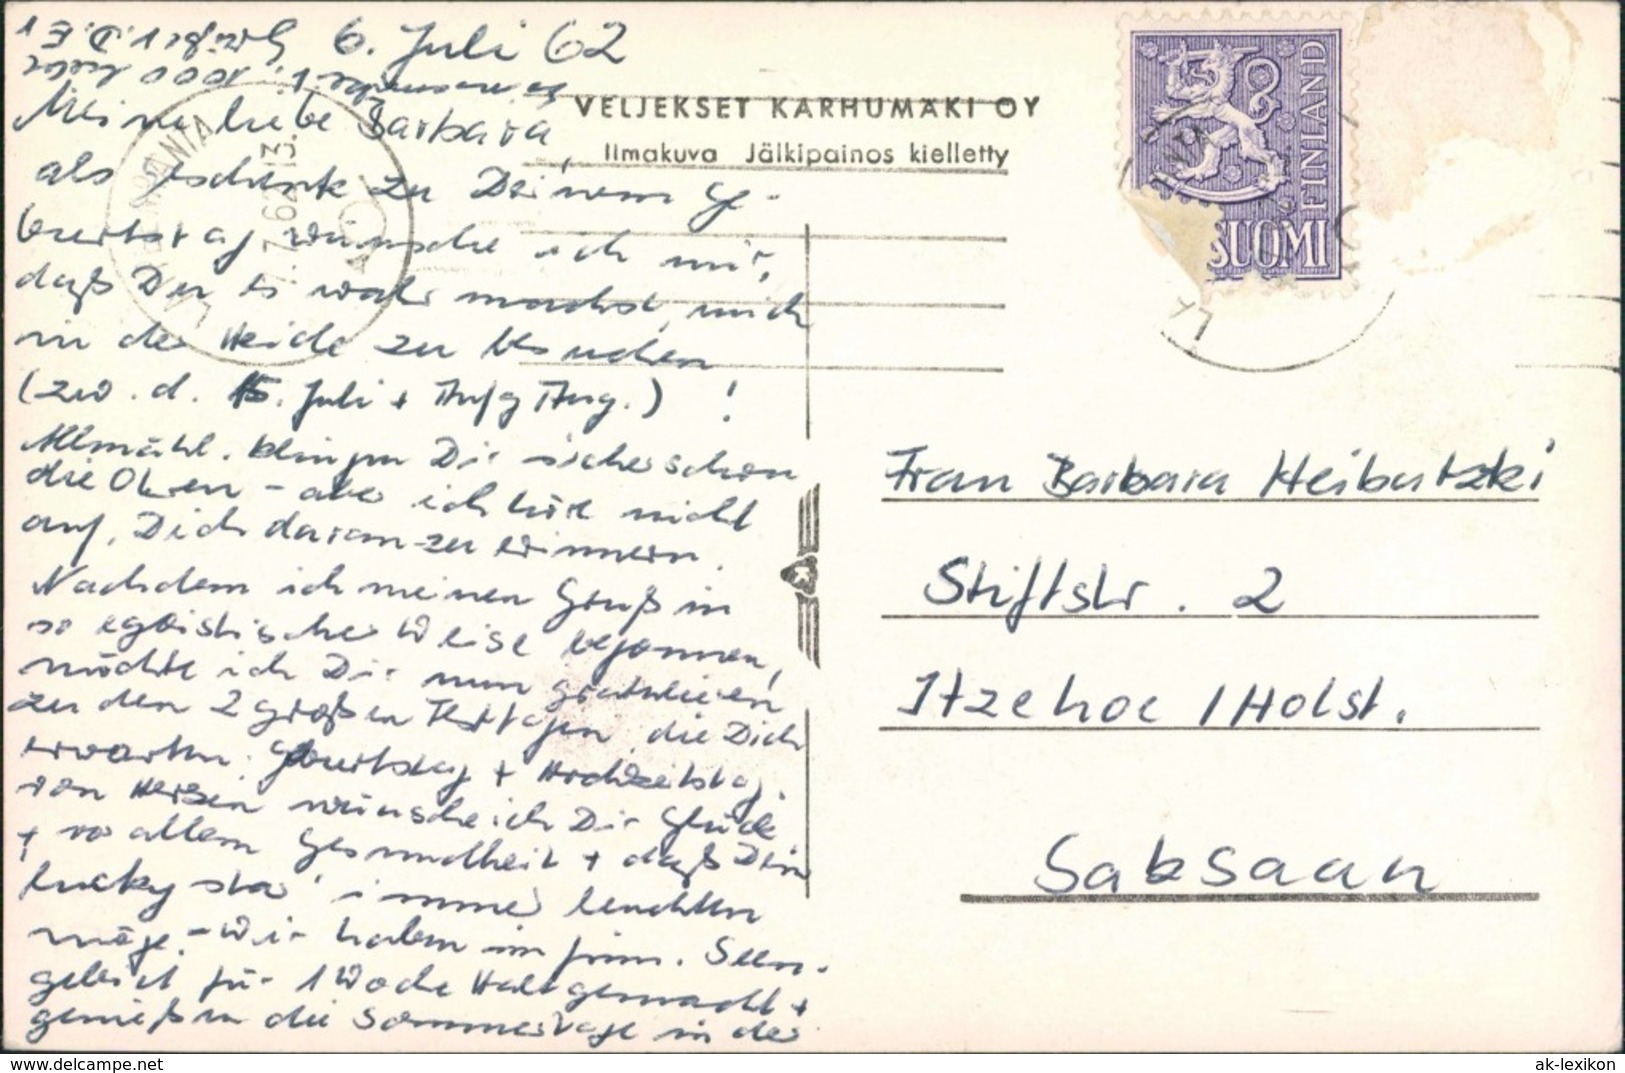 6. Juli 62
Meine liebe Barbara,
als Geschenk zu Deinem Ge-
burtstag wünsche ich mir,
daß Du es wahr machst, mich
in der Heide zu besuchen
(zw. d. 15. Juli + Anfg Aug.)!
Allmähl. klingen Dir sicher schon
die Ohren - aber ich höre nicht
auf, Dich daran zu erinnern.
Nachdem ich meinen Gruß in
so egoistischer Weise begonnen,
möchte ich Dir nun gratulieren
zu den 2 großen Festtagen, die Dich
erwarten: Geburtstag + Hochzeitstag.
Von Herzen wünsche ich Dir Glück
+ vor allem Gesundheit + daß Dein
lucky star immer leuchten
möge. - Wir haben im finn. Seen-
gebiet für 1 Woche Halt gemacht +
genießen die Sommertage in der
1000
VELJEKSET KARHUMÄKI OY
Ilmakuva Jälkipainos kielletty
SUOMI FINLAND
7.7.62 13.
Frau Barbara Heibutzki
Stiftstr. 2
Itzehoe / Holst.
Saksaan
delcampe.net
ak-lexikon